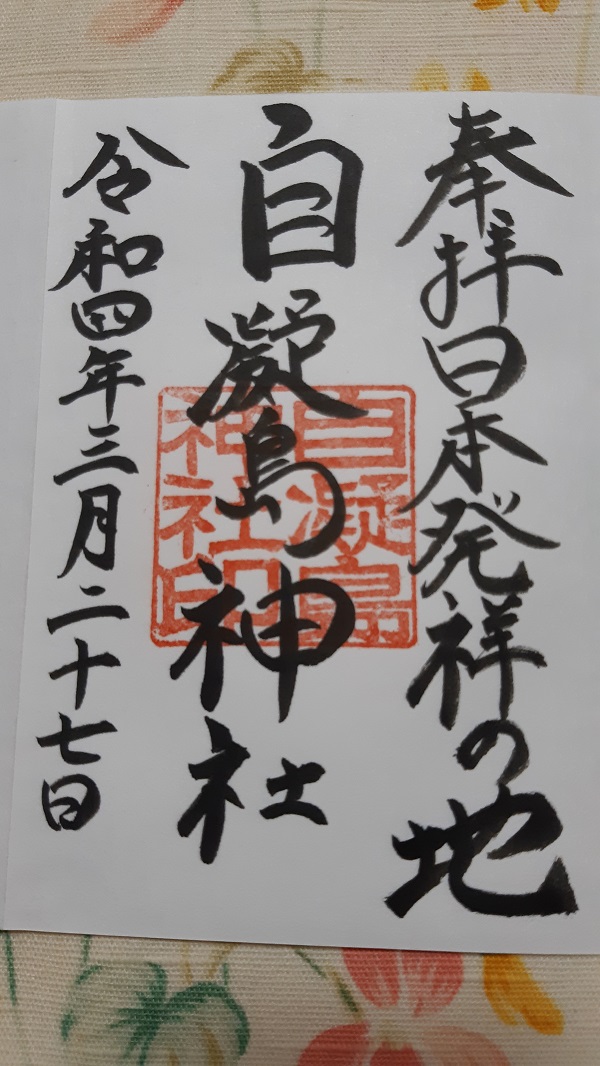 奉拝日本発祥の地
自凝島神社
令和四年三月二十七日
自凝島
神社印